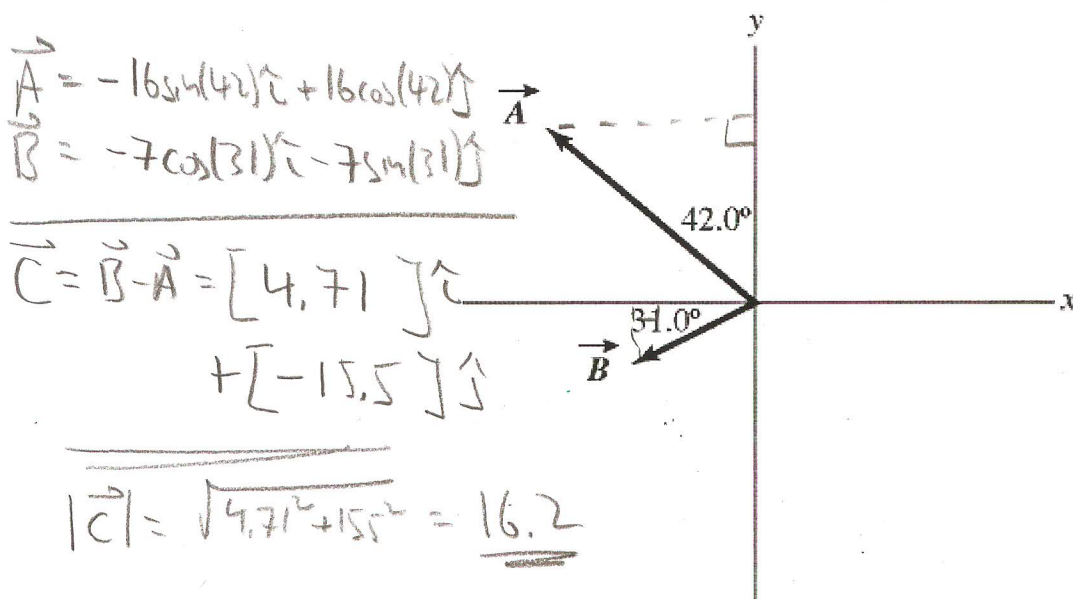 A⃗ = -16sin(42)î + 16cos(42)ĵ
B⃗ = -7cos(31)î - 7sin(31)ĵ
C⃗ = B⃗ - A⃗ = [4.71 ]î
+[-15.5 ]ĵ
|C⃗| = √4.71²+15.5² = 16.2
y
A⃗
42.0°
x
31.0°
B⃗